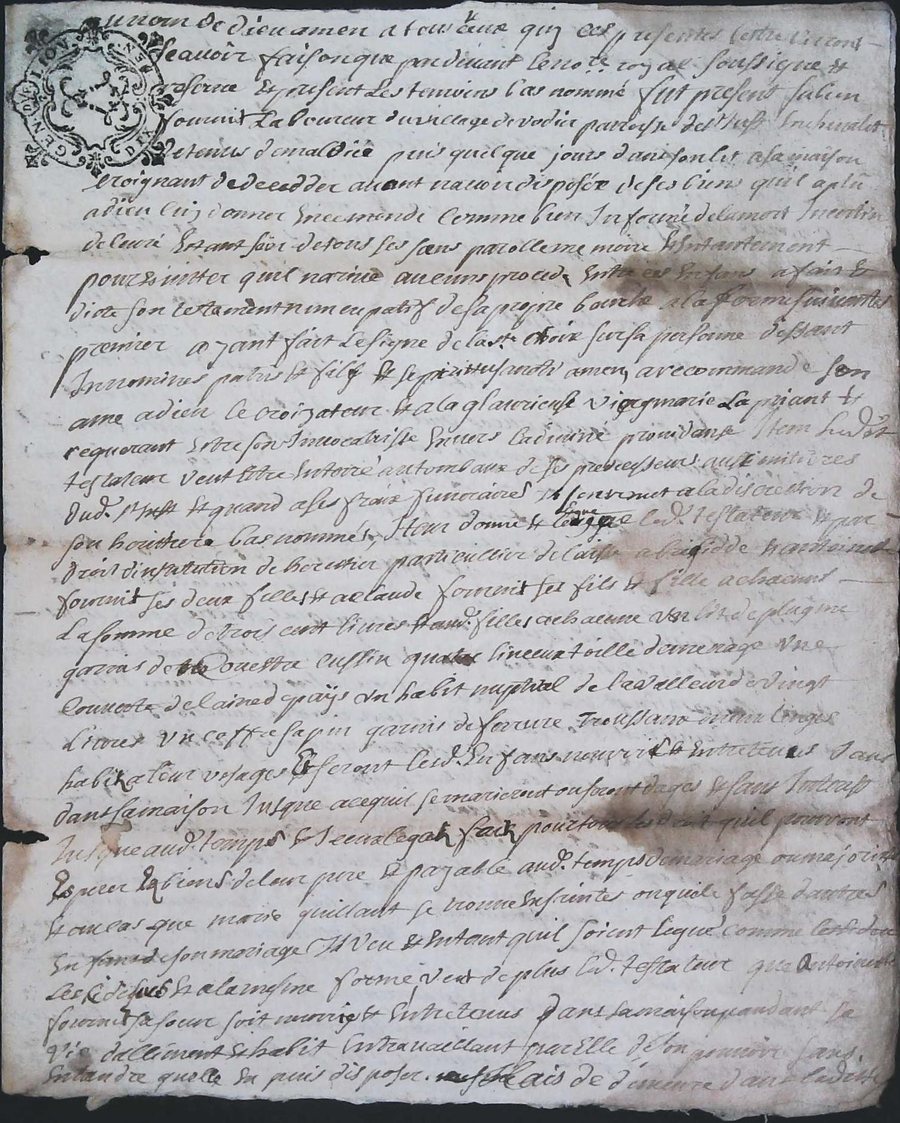 GEN. DE LION
DIX DEN
Au nom de dieu amen a tous ceux quj ces presentes lettre verront
scavoir faisonque pardevant le notre royal soussigne et
reserve et presents les temoins bas nommé fut present Julien
fournit laboureur du village de vodir parroisse de st Just en chevalet
detenus de maladie puis quelque jours dans son lit a sa maison
croignant de decedder avant navoir disposér deses biens quil a plû
a dieu luj donner en ce monde comme bien Informé de la mort Incertin
de leure Estant seur detous ses sens parolle memoire et Entantement
pour Eviter quil narrive aucuns procede Entre ces Enfans a fait et
dicté son testement nuncupatif de sa propre bouche a la forme suivantes
premier ayant fait le signe de la ste Croix sur sa personne dissant
In nomine patris et filj et spirittussanti amen a recommandé son
ame a dieu le createur et a la glaurieuse viergmarie la priant et
requerant Estre son Invocatrisse Envers la divine providanse Item led. st
testateur veut Etre Entorré au tombaux de ses precesseurs aux simitieres
dud. st Just et quand a ses fraix funeraires Il sen remet a la discression de
son heuthiere bas nommés, Item donne et legue led. testateur et par
droit dinstitution de heretier particullier delaisse a brigide et antoinete
fournit ses deux filles et a claude fournit ses fils et fille a chacuns
la somme de trois cent livres et aud. filles a chacune un lit de plugme
garnis de Couestre cussin quatre linceux toille de menage une
couverte de laine de païs un habit nuptial de la valleur de vingt
livres un coffre sapin garnis de ferrure troussant en eux linges
habit a leur usages Et seront led. Enfans nourri et Entretenus dans
dans sa maison Jusque acequil se marieront ou seront dages et sans Intrest
Jusque aud. temps et ce ena legat fait pour tous les droit quil pourront
Esperer Es biens de leur pere et payable aud. temps de mariage ou majorite
Et au cas que marie quillant se trouve Enseinte ou quil fasse dautres
Enfans de son mariage Il veu et Entant quil soient legué comme les dou
les sedidus et a la mesme forme, veut de plus led. testateur que antoinete
fournit sa soeur soit nourrie et Entretenus dans sa maison pandant sa
vie dalliment et habit En travaillant par Elle de son pouvoir sans
Entandre quelle En puis disposer. de demeure dans ladite